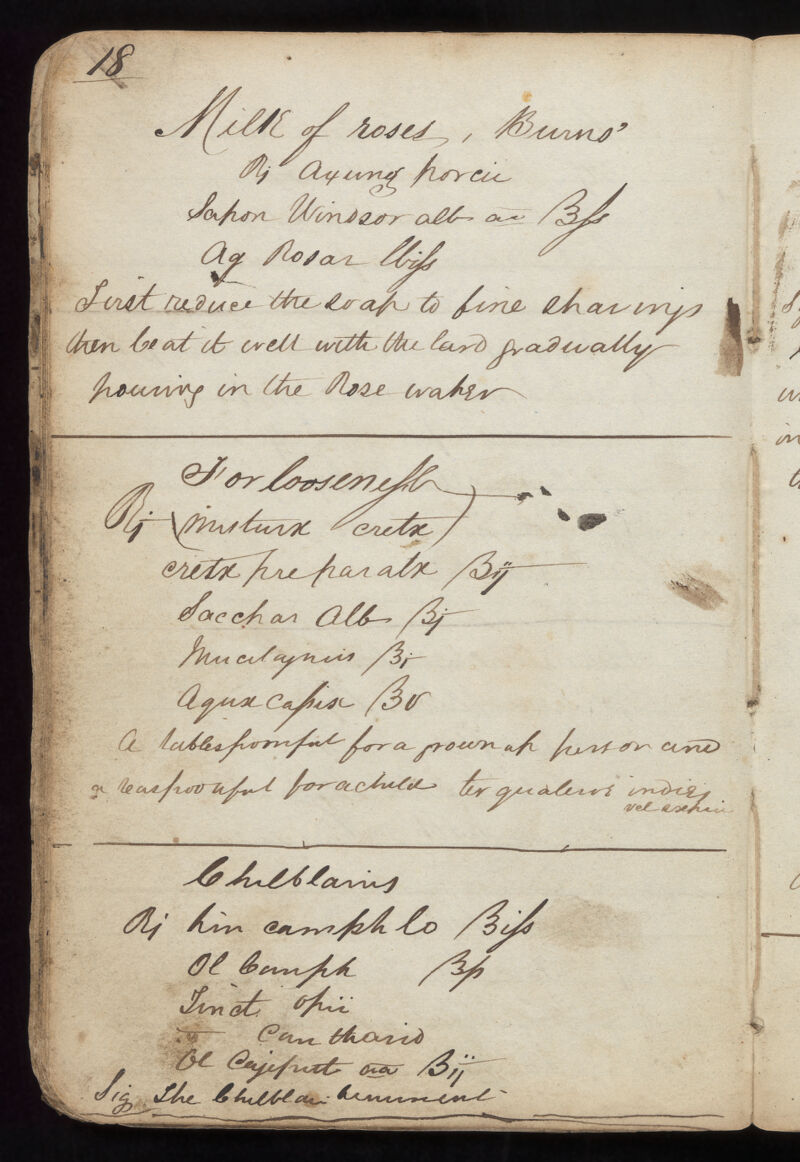 18
Milk of roses, Burns'
Rj Axung porcii
Sapon Windsor alb aa ʒſs
Aq Rosar lbiſs
First reduce the soap to fine shavings
then beat it well with the lard gradually
pouring in the Rose water
For looseneſs
Rj (misturæ cretæ)
cretæ preparatæ ʒij
Sacchar Alb ʒj
Mucilaginis ʒj
Aquæ caſsiæ ʒv
A tablespoonful for a grown up person and
a teaspoonful for a child ter quaterve indies
Chilblains
Rj Lin camph Co ʒiſs
Ol Camph ʒſs
Tinct opii
Cantharid
Ol Cajeput aa ʒij
Sig The Chilblain Liniment